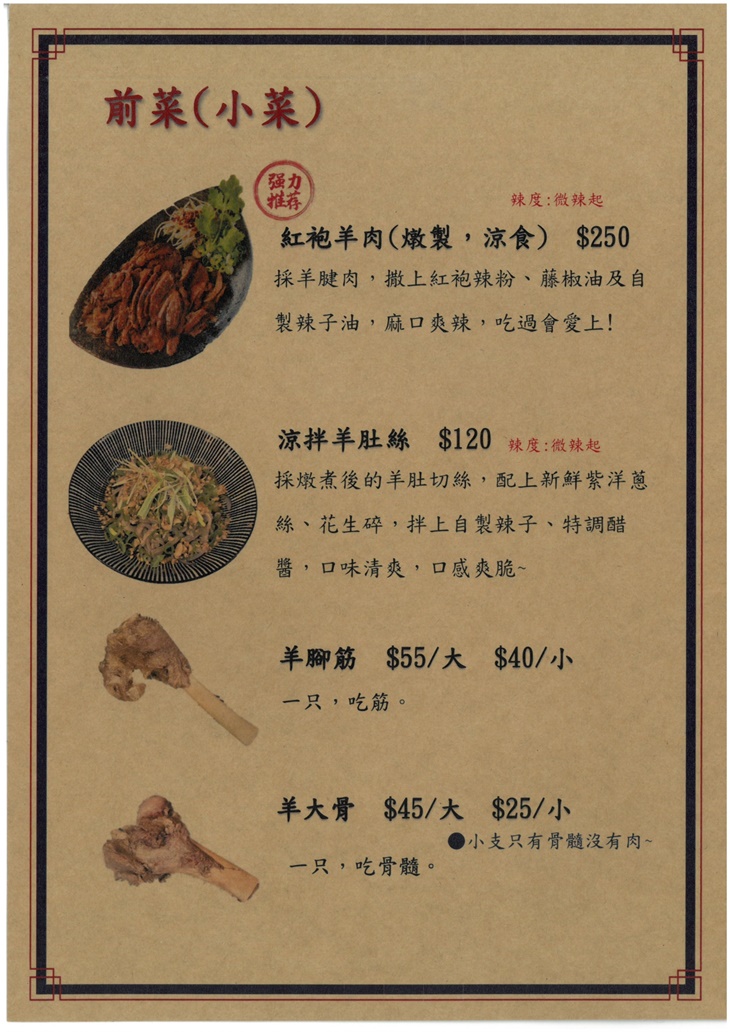 前菜(小菜)
强力
推荐
辣度:微辣起
紅袍羊肉(燉製,涼食) $250
採羊腱肉,撒上紅袍辣粉、藤椒油及自
製辣子油,麻口爽辣,吃過會愛上!
涼拌羊肚絲 $120 辣度:微辣起
採燉煮後的羊肚切絲,配上新鮮紫洋蔥
絲、花生碎,拌上自製辣子、特調醋
醬,口味清爽,口感爽脆~
羊腳筋 $55/大 $40/小
一只,吃筋。
羊大骨 $45/大 $25/小
●小支只有骨髓沒有肉~
一只,吃骨髓。